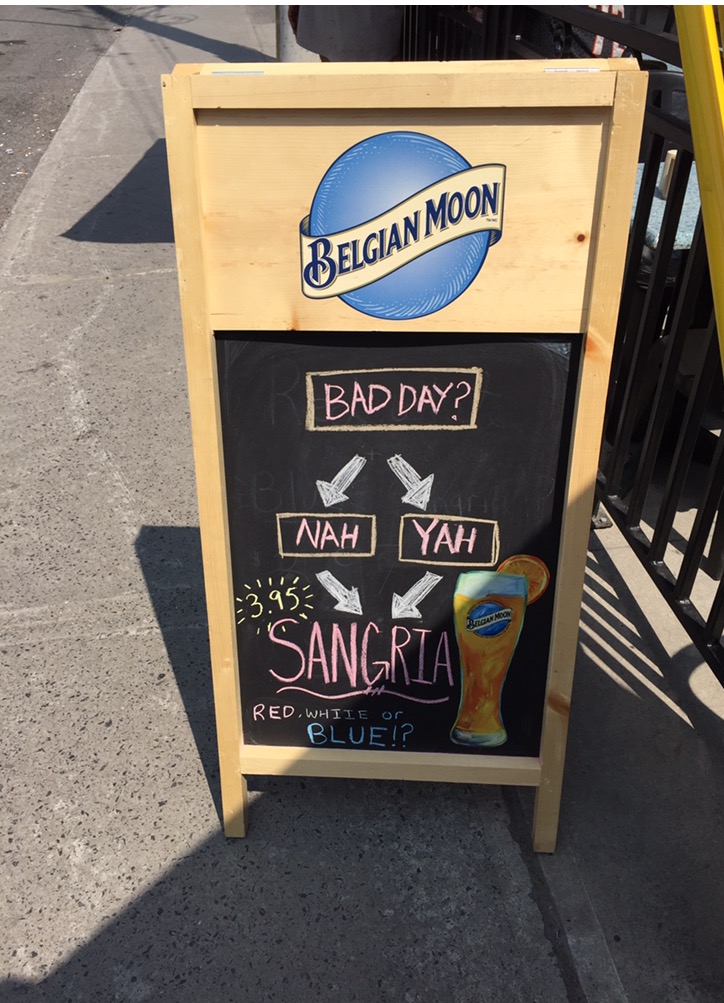 BELGIAN MOON
BAD DAY?
NAH YAH
3.95
SANGRIA
BELGIAN MOON
RED, WHITE or
BLUE!?